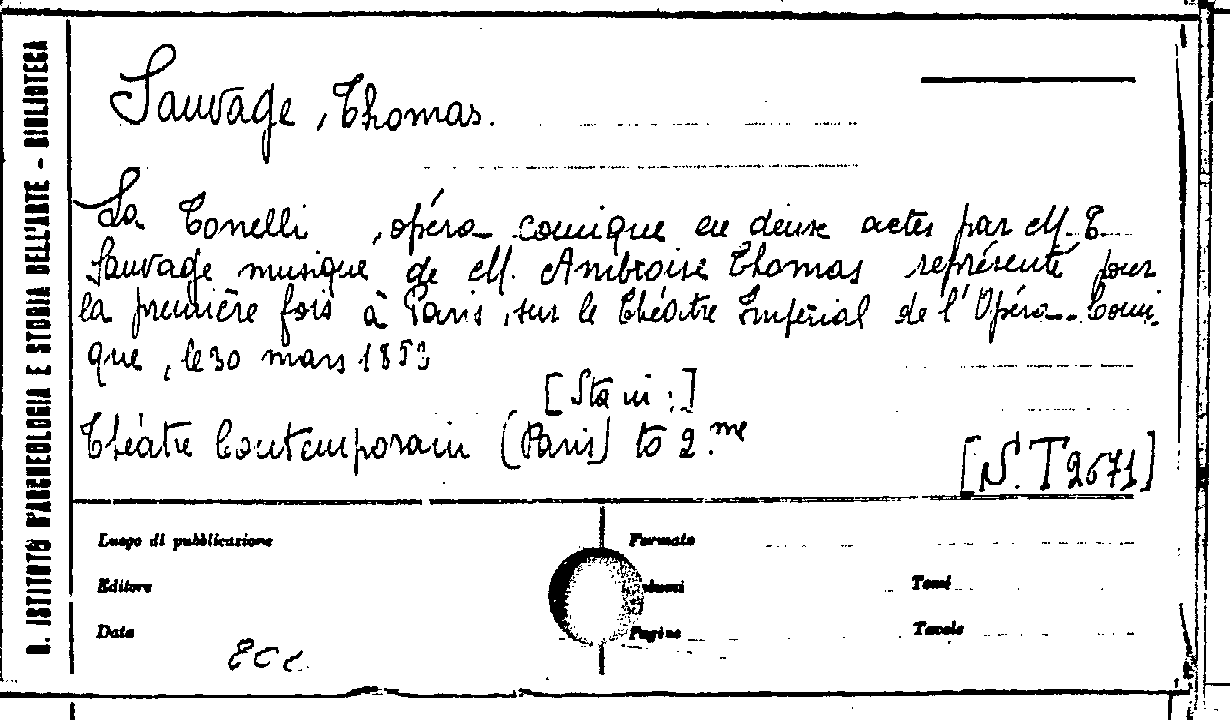 R. ISTITUTO D'ARCHEOLOGIA E STORIA DELL'ARTE - BIBLIOTECA
Sauvage, Thomas.
La Tonelli, opéra comique en deux actes par M. T.
Sauvage musique de M. Ambroise Thomas représenté pour
la première fois à Paris, sur le Théâtre Impérial de l'Opéra-Comi-
que, le 30 mars 1853
[Sta in:]
Théâtre Contemporain (Paris) to 2.me
[N. T 2671]
Luogo di pubblicazione
Formato
Editore
Tomi
Data
Pagine
Tavole